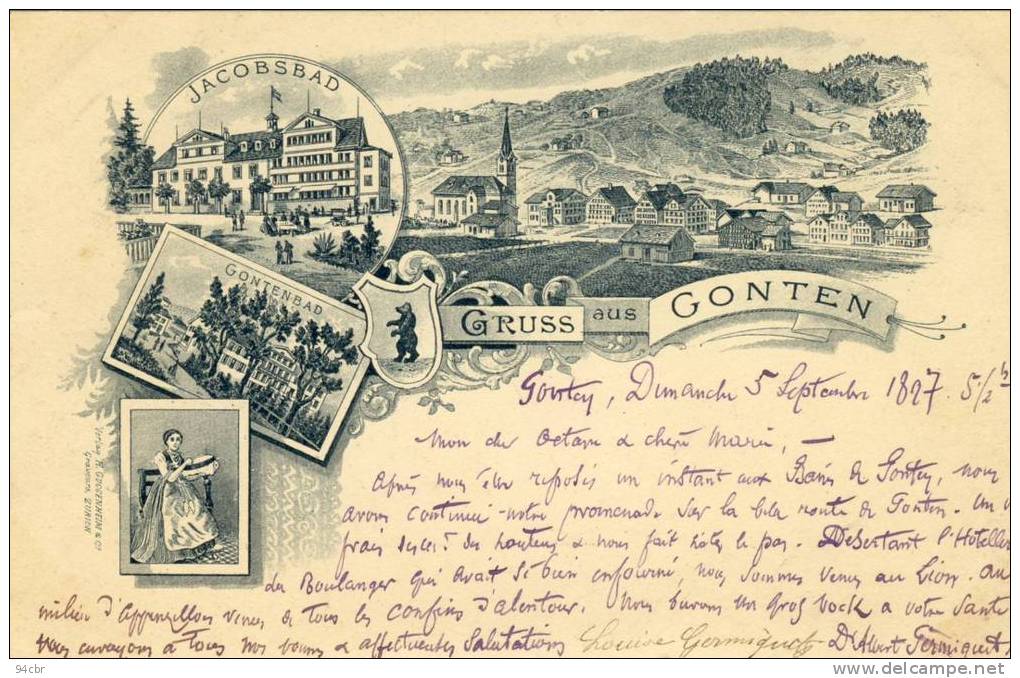 JACOBSBAD
GONTENBAD
GRUSS aus GONTEN
Verlag H. GUGGENHEIM & Co
Graveurs, ZÜRICH
Gonten, Dimanche 5 Septembre 1897. 5 1/2 h
Mon cher Octave & chère Marie, —
Après nous être reposés un instant aux Bains de Gonten, nous
avons continué notre promenade sur la belle route de Gonten. Un
frais des hauteurs & nous fait hâter le pas. Désertant l'Hôtellerie
du Boulanger qui avait si bien enfourné, nous sommes venus au Lion. Au
milieu d'Appenzellois venus de tous les confins d'alentour. Nous buvons un gros bock à votre santé
vous envoyons à tous nos bonnes & affectueuses salutations Louise Germiquet Dr Albert Germiquet
94cbr
www.delcampe.net